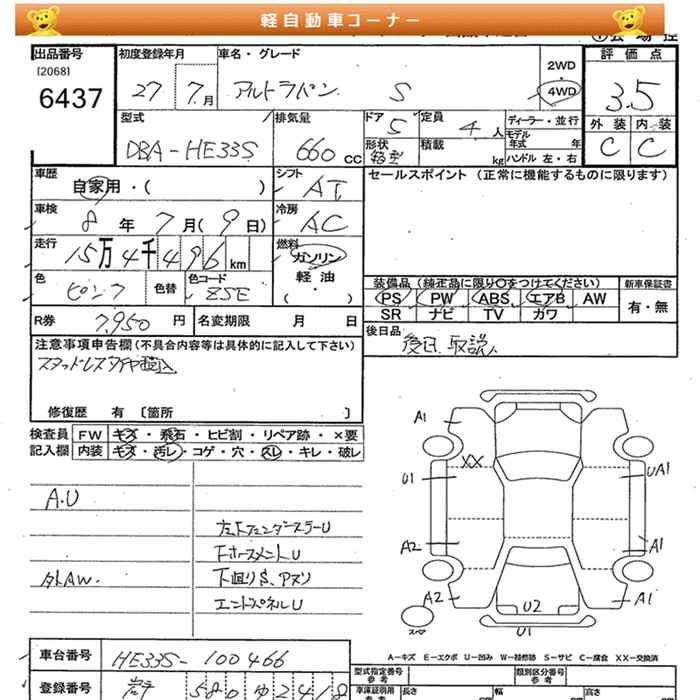 軽自動車コーナー
出品番号 初度登録年月 車名・グレード 評価点
[2068]
6437 27 7月 アルトラパン S 2WD・4WD 3.5
型式 排気量 ドア 5 定員 4人 ディーラー・並行 外装 内装
DBA-HE33S 660cc 形状 箱型 積載 kg モデル年式 年 C C
ハンドル 左・右
車歴 シフト セールスポイント (正常に機能するものに限ります)
自家用・( ) AT
車検 冷房
8年 7月(9日) AC
走行 燃料
15万4千496km ガソリン・軽油・( )
色 ピンク 色替 色コード ZSE
装備品 (純正品に限り○をつけてください) 新車保証書
PS PW ABS エアB AW 有・無
SR ナビ TV カワ
R券 7,950円 名変期限 月 日
後日品 後日.取説.
注意事項申告欄 (不具合内容等は具体的に記入して下さい)
スタッドレスタイヤ積込
修復歴 有 [箇所 ]
検査員 FW キズ・飛石・ヒビ割・リペア跡・×要
記入欄 内装 キズ・汚レ・コゲ・穴・スレ・キレ・破レ
A.U
左下フェンダーステーU
下回りS、アメリ
外AW.
エンドパネルU
A1 A1
XX
U1 UA1
A2 A1
A2 U2 A1
U1
A-キズ E-エクボ U-凹み W-補修跡 S-サビ C-腐食 XX-交換済
車台番号 HE33S-100466
型式指定番号 参考 類別区分番号 参考
登録番号 岩手 580 ゆ 2418
車庫証明用 参考 長さ 幅 高さ